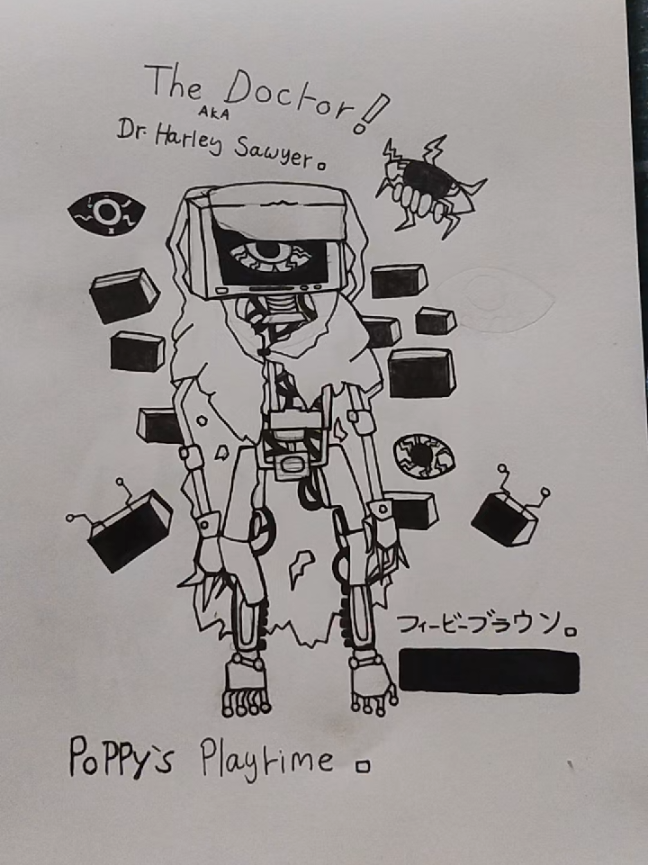 The Doctor!
AKA
Dr. Harley Sawyer.
フィービーブラウン。
PoPPy's Playtime.